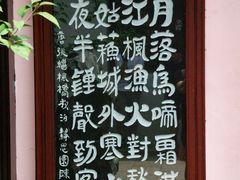 月落烏啼霜滿
江楓漁火對愁
姑蘓城外寒
夜半鐘聲到客
唐張繼楓橋夜泊 靜思園陳